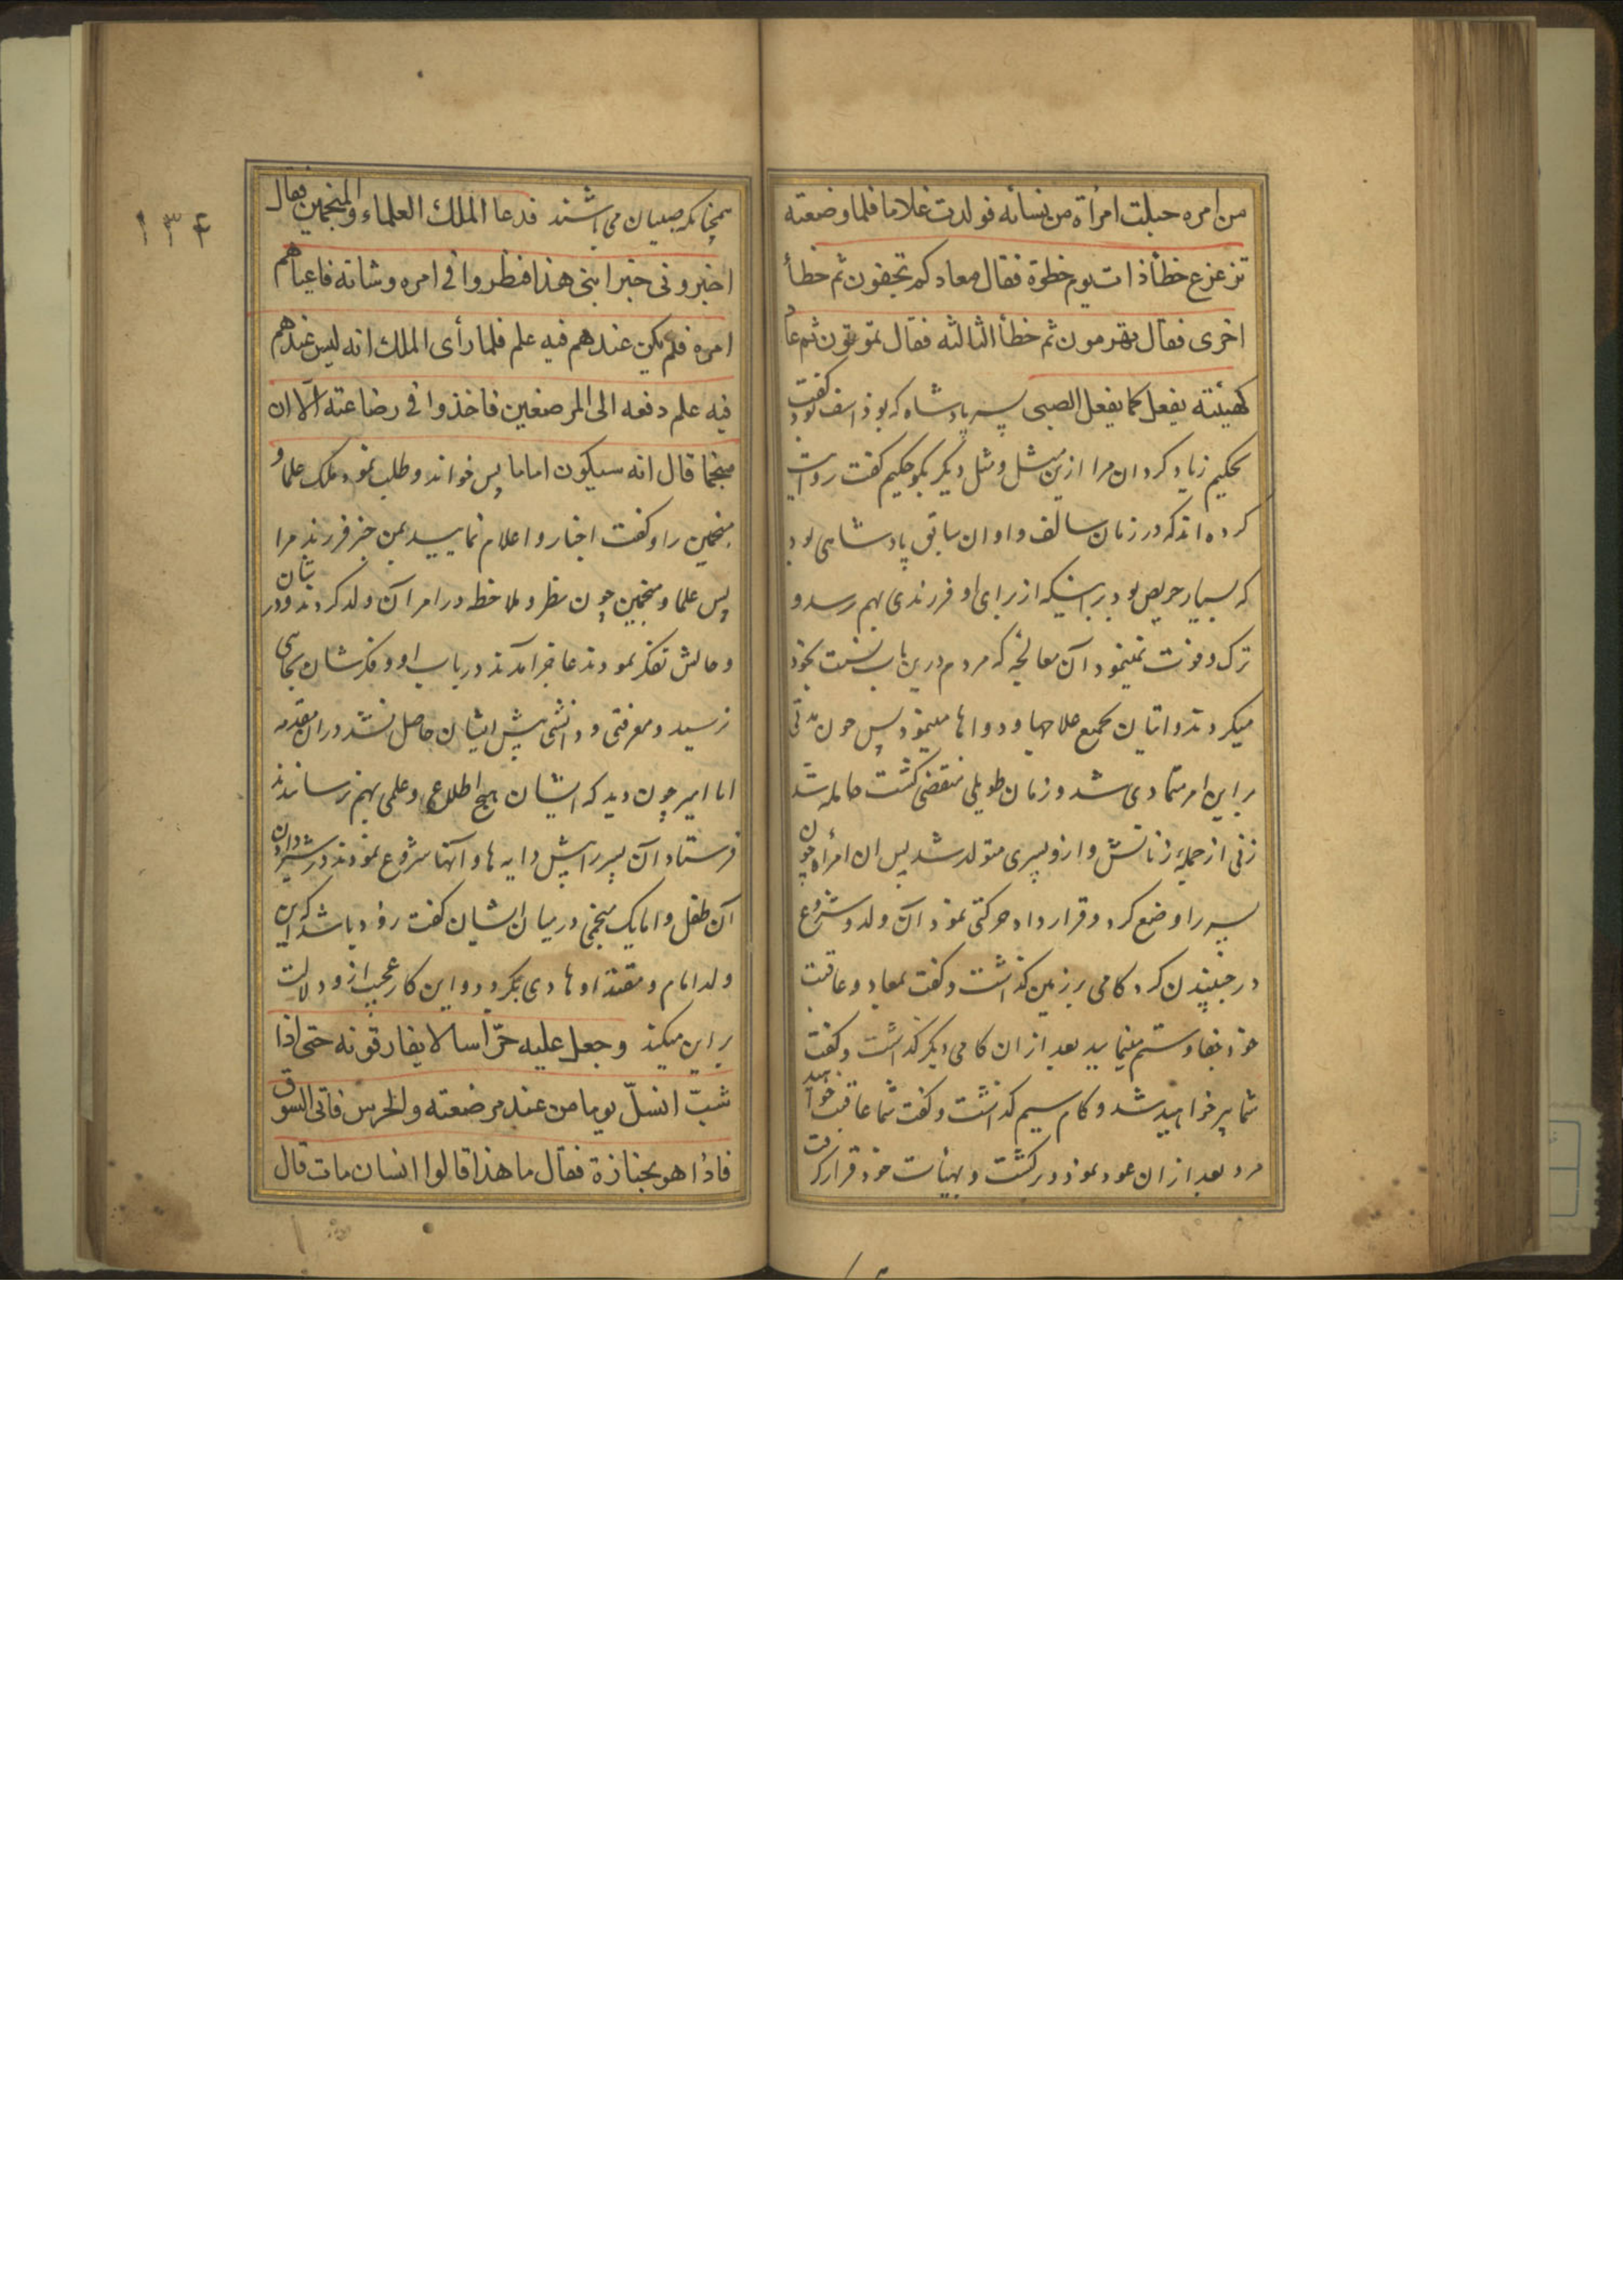 من امره حبلت امرأة من نسائه فولدت غلاما فلما وضعته
تزعزع خطأ ذات یوم خطوة فقال معادکم تجفون ثم خطأ
اخری فقال تهرمون ثم خطأ الثالثه فقال تموتون ثم عاد
کهیئته یفعل کما یفعل الصبی پسر پادشاه که بوذاسف بود گفت
بحکیم زیاد کردان مرا ازین مثل و مثل دیگر بگو حکیم گفت روایت
کرده اند که در زمان سالف و اوان سابق پادشاهی بود
که بسیار حریص بود بر اینکه از برای او فرزندی بهم رسد و
ترک و فوت نمینمود آن معالجه که مردم درین باب نسبت بخود
میکردند و اتیان بجمیع علاجها و دواها مینمود پس چون مدتی
بر این امر متمادی شد و زمان طویلی منقضی گشت حامله شد
زنی از جمله زنانش و ازو پسری متولد شد پس ان امرأه چون
پسر را وضع کرد و قرار داد حرکتی نمود آن ولد و شروع
در جنبیدن کرد کامی بر زمین گذاشت و گفت بمعاد و عاقبت
خود جفا و ستم مینمایید بعد از ان کامی دیگر گذاشت و گفت
شما پیر خواهید شد و کام سیم گذاشت و گفت شما عاقبت خواهید
مرد بعد از ان عود نمود و برگشت و بهیأت خود قرار گرفت
۱۳۴
همچنانکه صبیان می باشند فدعا الملك العلماء والمنجمین فقال
اخبرونی خبر ابنی هذا فنظروا فی امره وشانه فاعیاهم
امره فلم یکن عندهم فیه علم فلما رأی الملك انه لیس عندهم
فیه علم دفعه الی المرضعین فاخذوا فی رضاعته الا ان
منجما قال انه سیکون اماما پس خواند و طلب نمود ملک علما و
منجمین را و گفت اخبار و اعلام نمایید بمن خبر فرزند مرا
پس علما و منجمین چون نظر و ملاحظه در امر آن ولد کردند و در شان
و حالش تفکر نمودند عاجز آمدند در باب او و فکرشان بجایی
نرسید و معرفتی و دانشی پیش ایشان حاصل نشد در ان مقدمه
اما امیر چون دید که ایشان هیچ اطلاعی و علمی بهم نرسانیدند
فرستاد آن پسر را پیش دایه ها و آنها شروع نمودند در شیر دادن
آن طفل و اما یک منجمی در میان ایشان گفت زود باشد که این
ولد امام و مقتدا و هادی بگردد و این کار عجیب ازو دلالت
بر این میکند وجعل علیه حرّاسا لا یفارقونه حتی اذا
شبّ انسلّ یوما من عند مرضعته والحرس فاتی السوق
فاذا هو بجنازة فقال ما هذا قالوا انسان مات قال